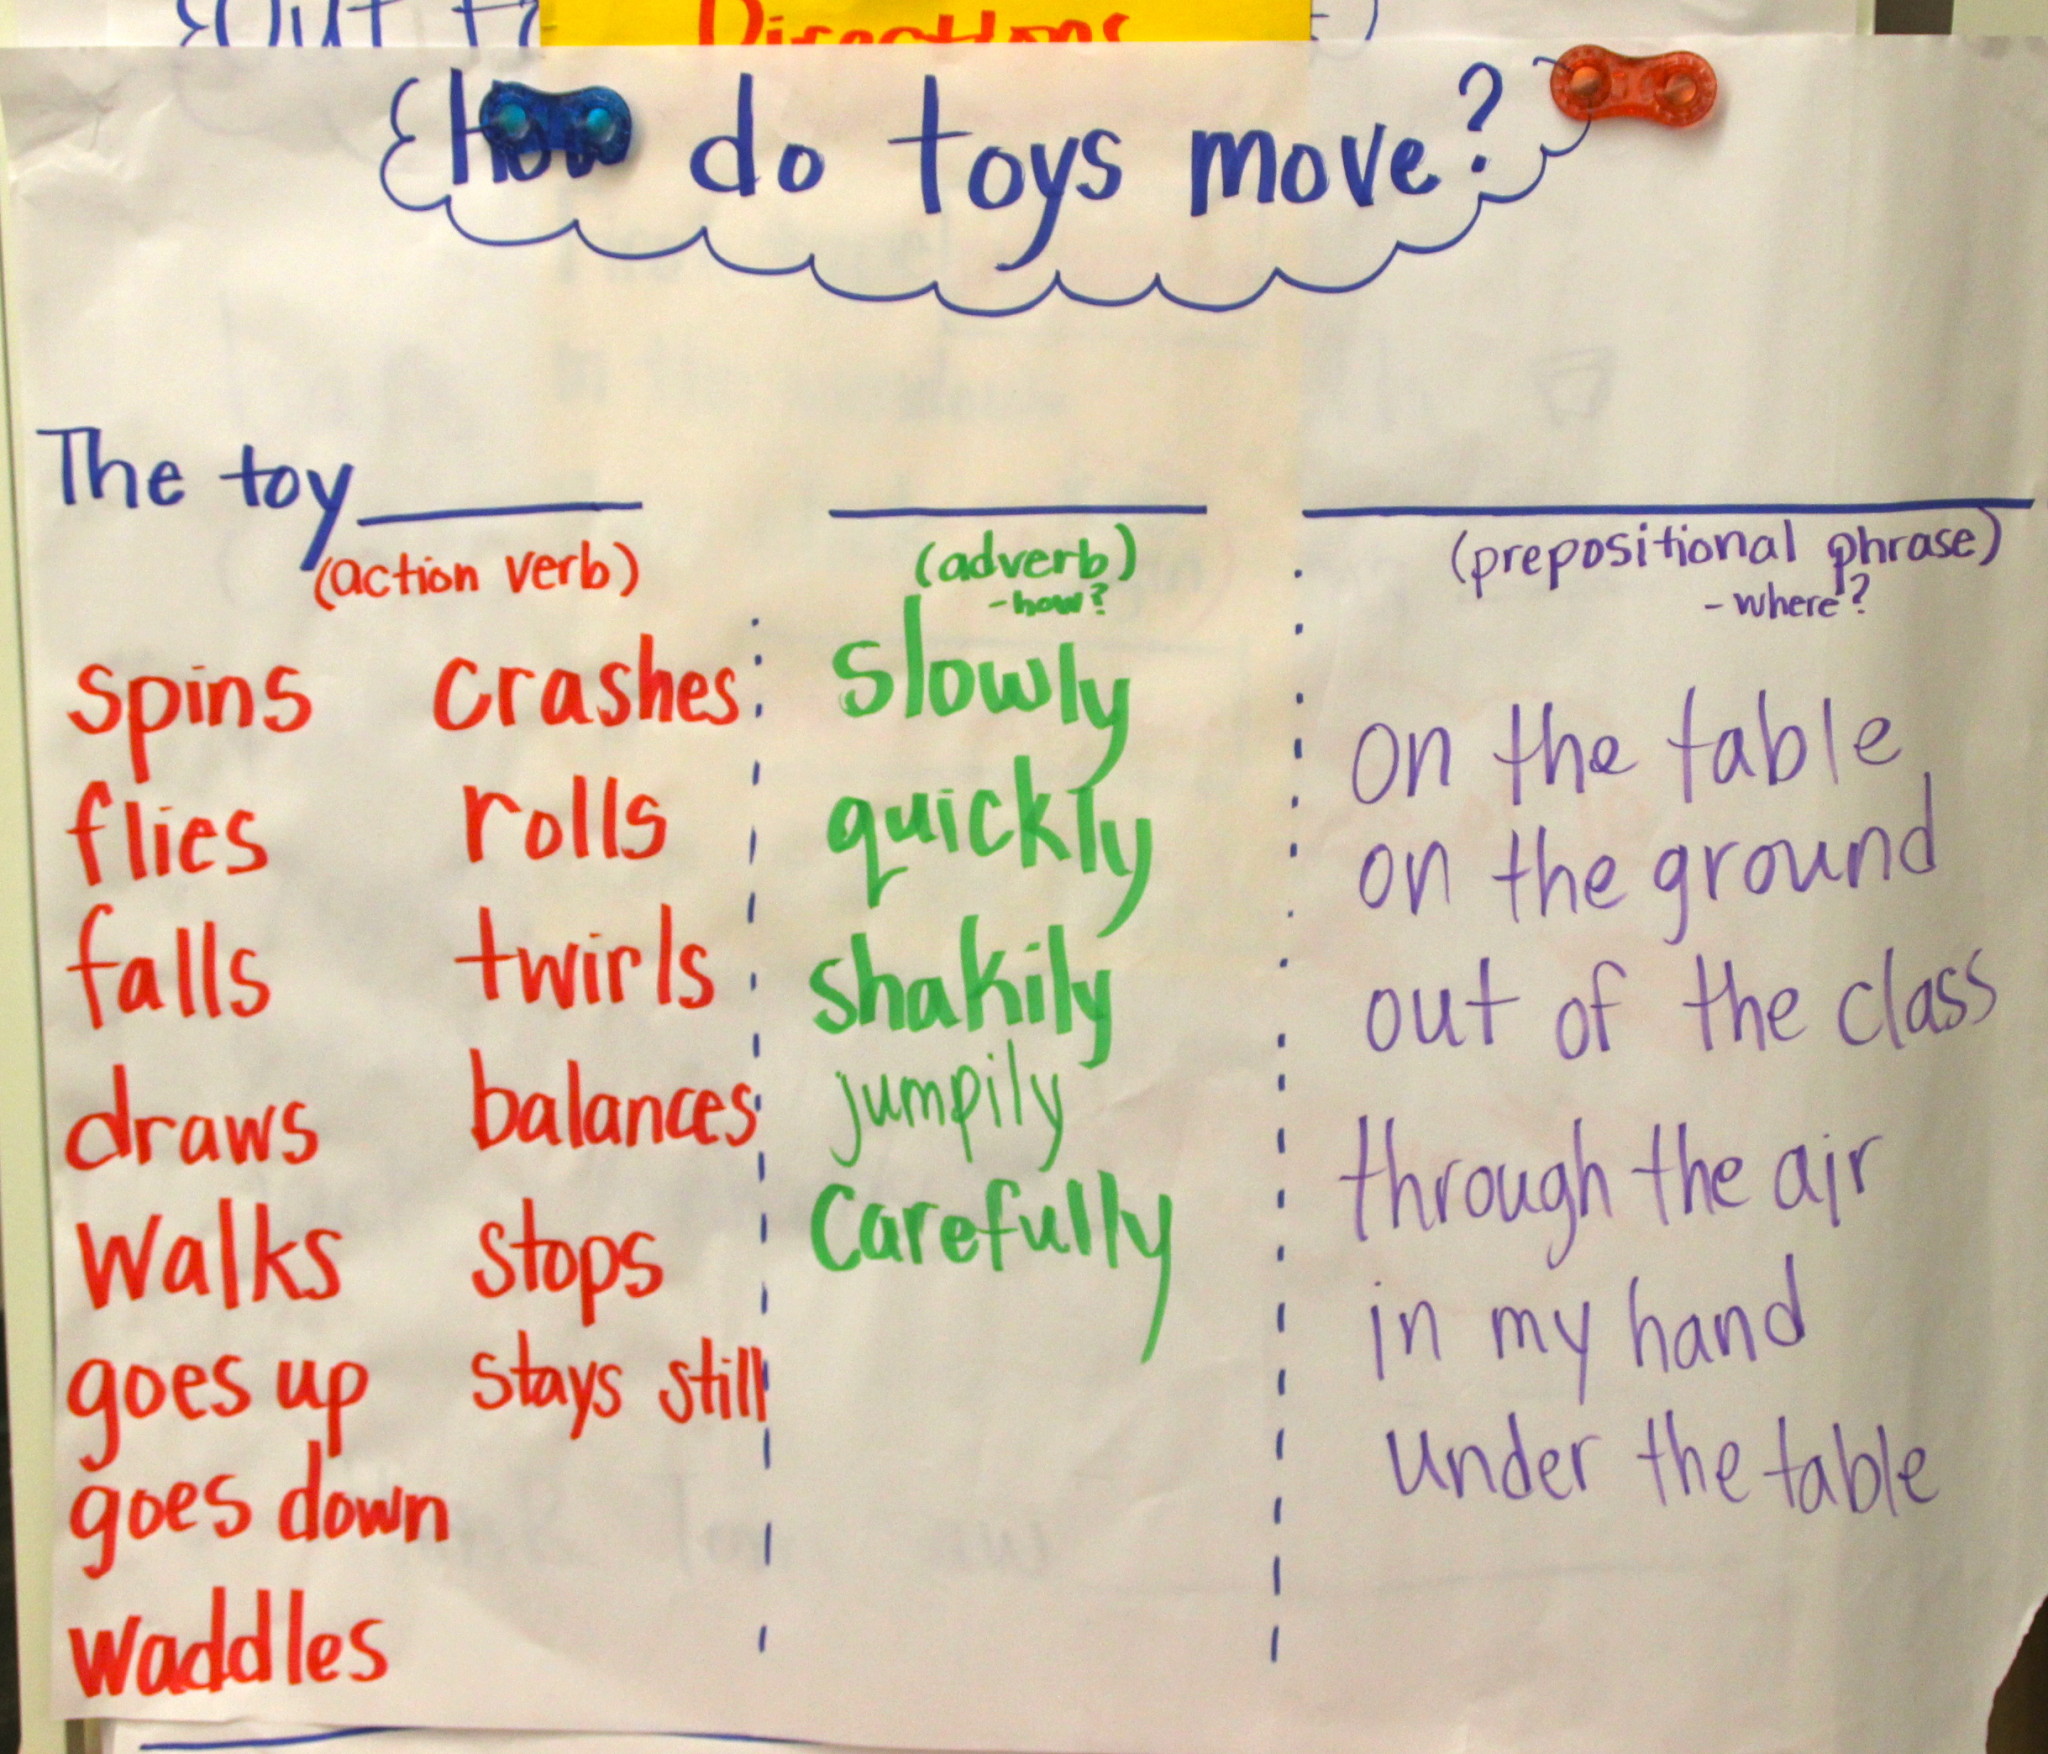 Directions
How do toys move?
The toy
(action verb)
(adverb)
-how?
(prepositional phrase)
-where?
spins crashes
flies rolls
falls twirls
draws balances
Walks stops
goes up stays still
goes down
waddles
slowly
quickly
shakily
jumpily
Carefully
on the table
on the ground
out of the class
through the air
in my hand
under the table